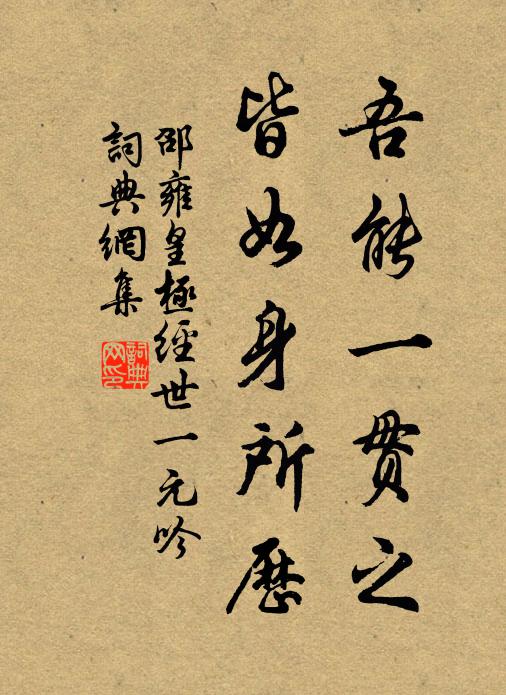 吾能一貫之
皆如身所歷
邵雍皇極經世一元吟
詞典網集
詞典
网印